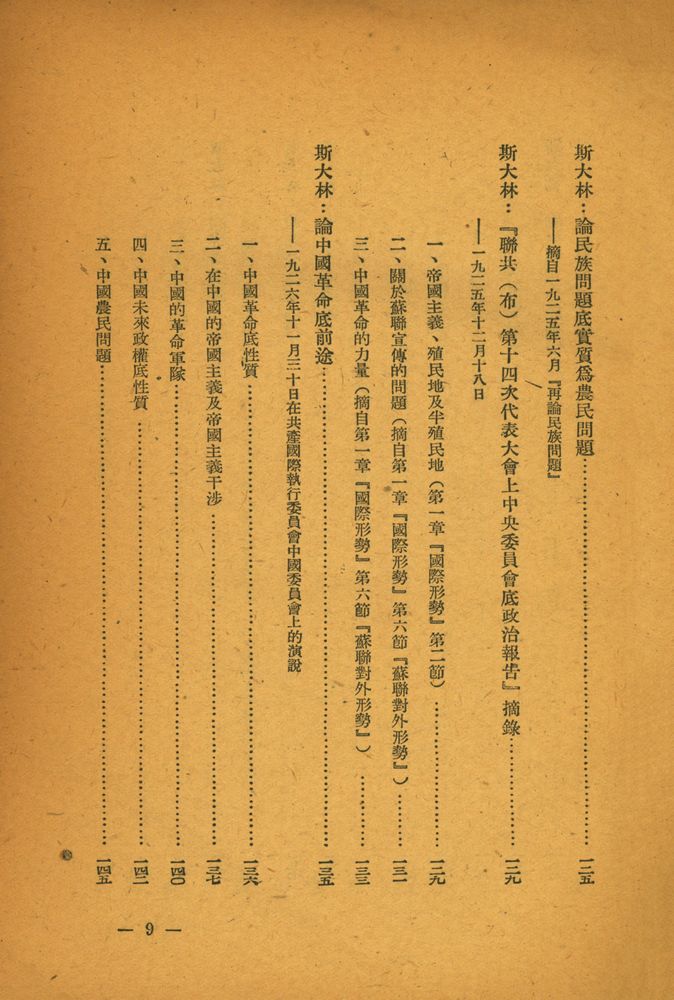 斯大林：論民族問題底實質爲農民問題……一二五
——摘自一九二五年六月『再論民族問題』
斯大林：『聯共（布）第十四次代表大會上中央委員會底政治報告』摘錄……一二九
——一九二五年十二月十八日
一、帝國主義、殖民地及半殖民地（第一章『國際形勢』第二節）……一二九
二、關於蘇聯宣傳的問題（摘自第一章『國際形勢』第六節『蘇聯對外形勢』）……一三一
三、中國革命的力量（摘自第一章『國際形勢』第六節『蘇聯對外形勢』）……一三三
斯大林：論中國革命底前途……一三五
——一九二六年十一月三十日在共產國際執行委員會中國委員會上的演說
一、中國革命底性質……一三六
二、在中國的帝國主義及帝國主義干涉……一三七
三、中國的革命軍隊……一四〇
四、中國未來政權底性質……一四二
五、中國農民問題……一四五
— 9 —